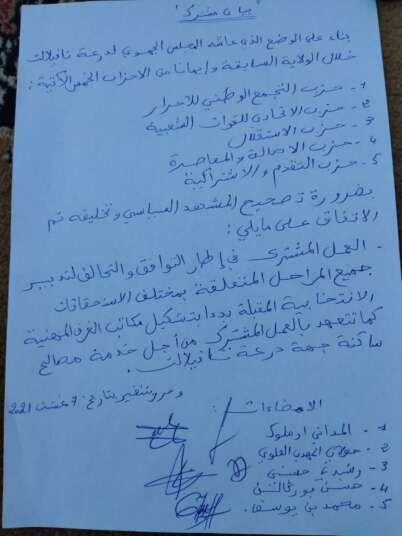 "بيان مشترك"
بناء على الوضع الذي عاشه المجلس الجهوي لدرعة تافيلالت
خلال الولاية السابقة وإيمانا من الأحزاب الخمس الآتية :
1- حزب التجمع الوطني للأحرار
2- حزب الاتحادي للقوات الشعبية
3- حزب الاستقلال
4- حزب الأصالة والمعاصرة
5- حزب التقدم والاشتراكية
بضرورة تصحيح المشهد السياسي وتخليقه تم
الاتفاق على مايلي :
- العمل المشترك في إطار التوافق والتحالف لتدبير
جميع المراحل المتعلقة بمختلف الاستحقاقات
الانتخابية المقبلة بدءا بتشكيل مكاتب الغرف المهنية
كما نتعهد بالعمل المشترك من أجل خدمة مصالح
ساكنة جهة درعة تافيلالت.
بتاريخ : 7 غشت 2021
الإمضاءات :
1- المداني املوك
2- مولاي المهدي العلوي
3- رشيد حسني
4- حسن بورقالن
5- محمد بن يوسف